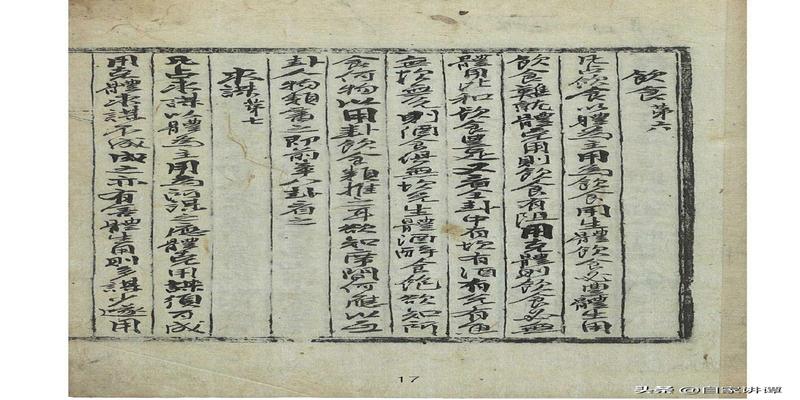 飲食第六
凡占飲食以體為主用為飲食用生體飲食必豊體生用
飲食難就體克用則飲食有阻用克體則飲食必無
體用比和飲食豊足又看卦中有坎有酒有兌有食
無坎無兌則酒食俱無坎兌生體酒醉食飽欲知所
食何物以用卦飲食類推之耳欲知席間何應以互
卦人物類看之即前八卦看之
求謀第七
凡占求謀以體為主用為所謀之應體克用謀須可成
用克體求謀不成成之亦有害體生用則多謀少遂用
17
头条 @自家讲谭